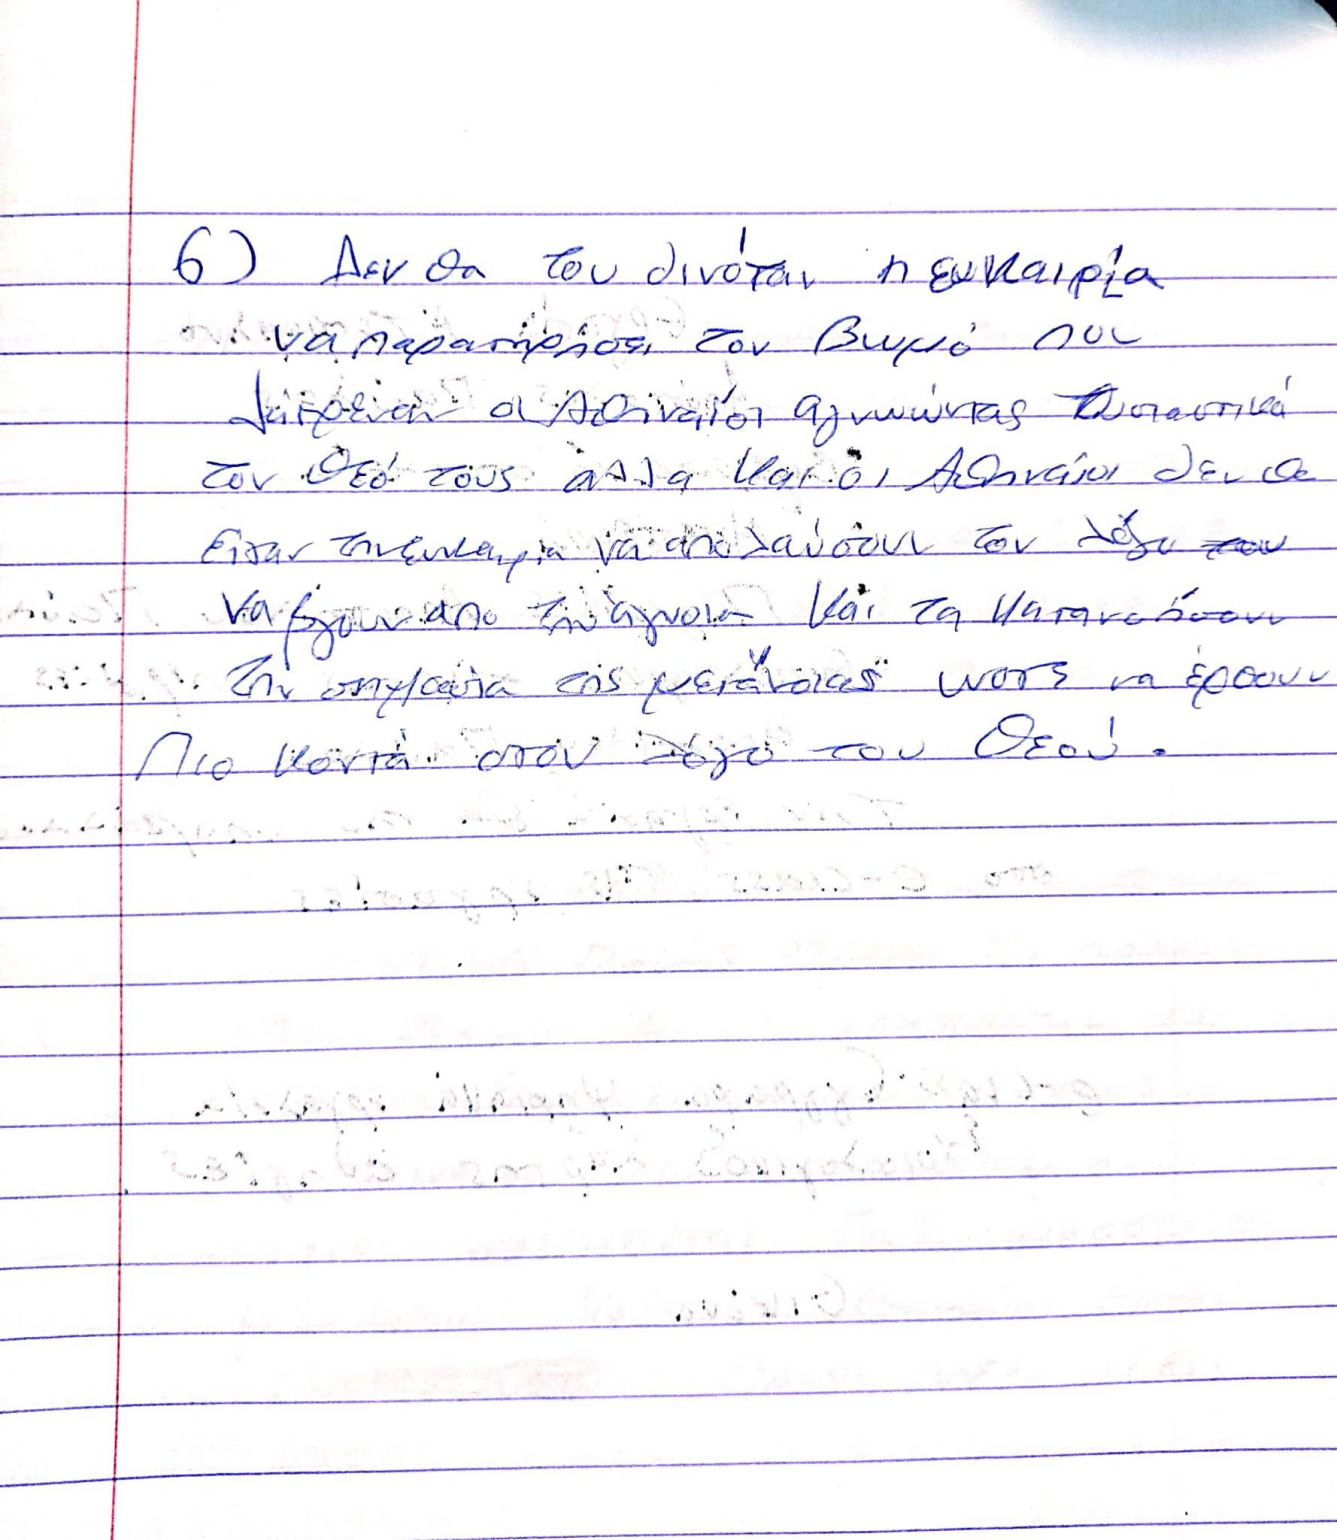 6) Δεν θα του δινόταν η ευκαιρία
να παρατηρήσει τον Βωμό που
λάτρεναν οι Αθηναίοι αγνοώντας ουσιαστικά
τον Θεό τους αλλα και οι Αθηναίοι δεν θα
είχαν την ευκαιρία να απολαύσουν τον λόγο του
να βγουν απο την άγνοια και τα κατανοήσουν
την σημασία της μετάνοιας ωστε να έρθουν
πιο κοντά στον λόγο του Θεού.